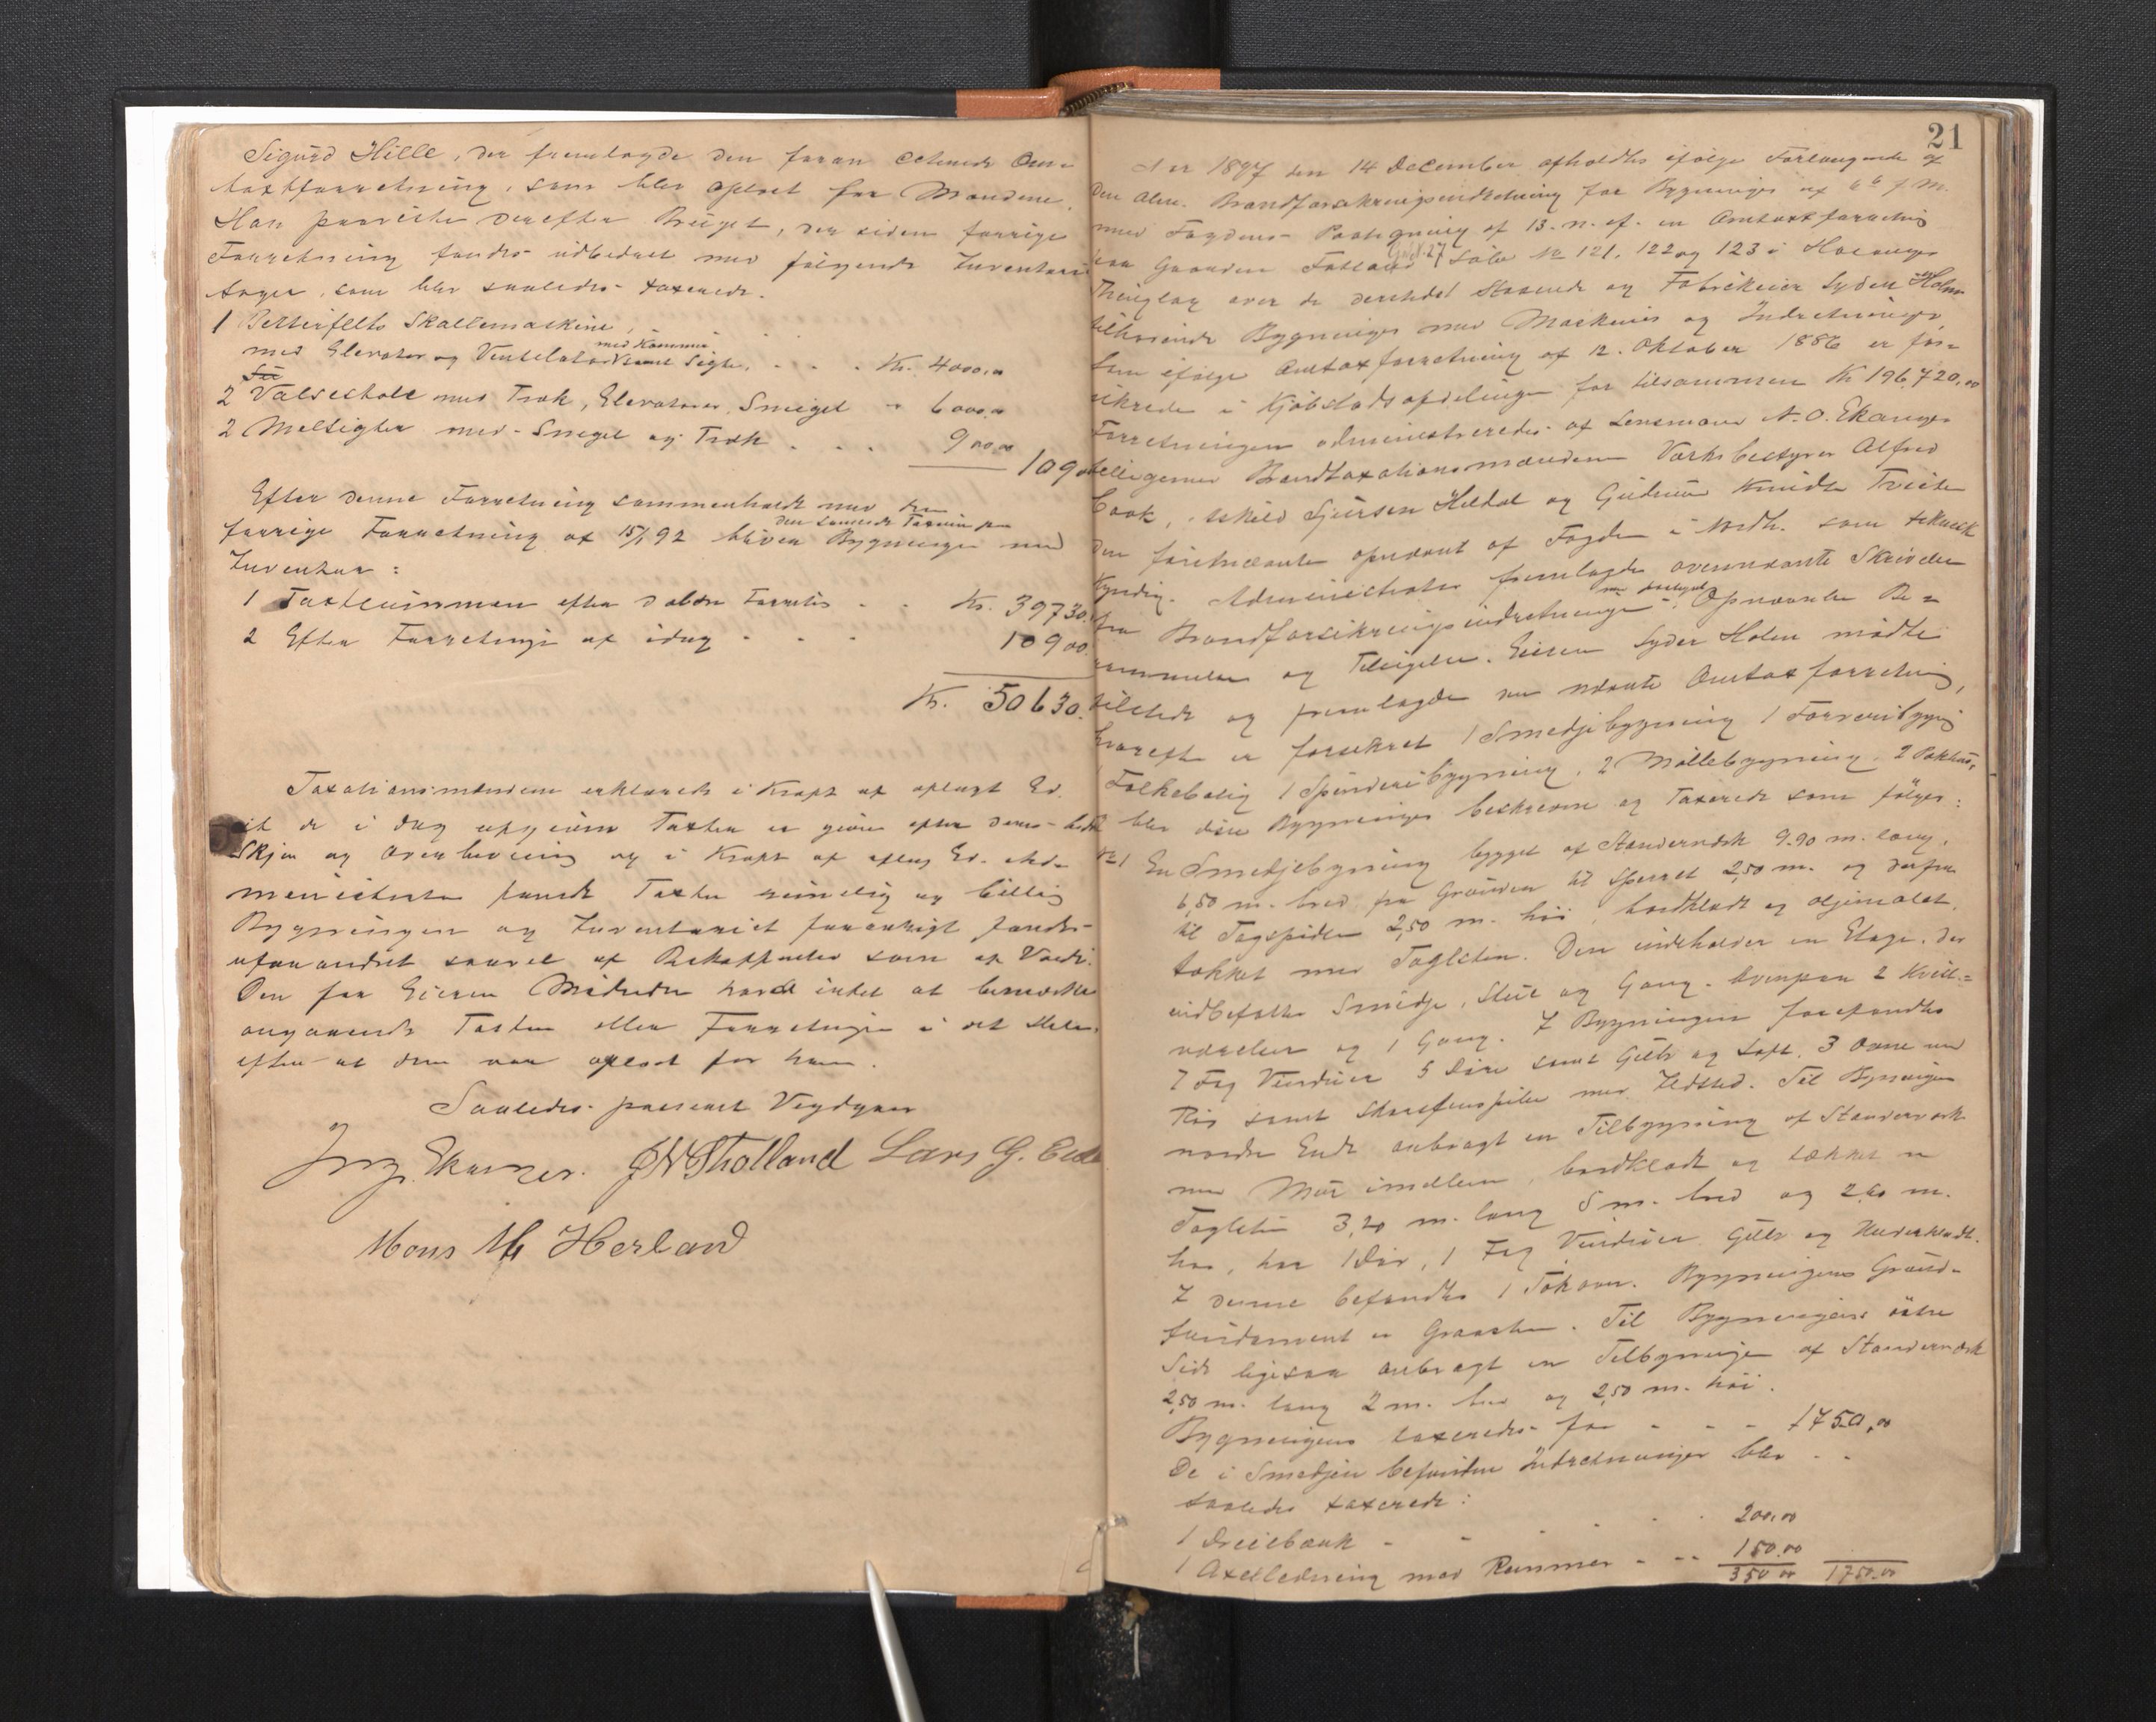 Sigurd Hille, der fremlagde den foran Om=
taxtforretning, som blev oplæst for Mændene.
Han paaviste derefter Bruget, der siden forrige
Forretning fandtes udbedret med følgende Inventarie
som blev saaledes taxerede.
1 Skallemaskine,
med Elevator og Ventilator samt Sigte, . . . Kr. 4000,00
med Kamme
2 Valsestole med Træk, Elevatorer, Sneigel " 6000,00
2 Melsigter med Snegel og Træk . . . 900,00
109
Efter denne Forretning sammenholdt med den
forrige Forretning af 15/1 92 bliver Bygninger med
Inventar:
1 Taxtsummen efter ældre Forretn . . Kr. 39730.
2 Efter Forretninge af idag . . . 10900.
Kr. 50630.
Taxationsmændene erklærede i Kraft af aflagt Ed.
at de i dag afgivne Taxter er givne efter deres bedste
Skjøn og Overbevisning og i Kraft af aflag Ed.
fandt Taxten rimelig og billig
Bygningen og Inventariet forøvrigt fandtes
uforandret saavel af Beskaffenhed som af Værdi.
Den for Eieren Mødende havde intet at bemærke
angaaende Taxten eller Forretningen i det Hele,
efter at den var oplæst for ham.
Saaledes passeret Vrydgaar
Ekanger. Stholland Lars G. Eide
Mons M Herland
21
Aar 1897 den 14 December afholdtes ifølge Forlangende af
Den alm. Brandforsikringsindretning for Bygninger af 6te f. M.
med Fogdens Paategning af 13. n. af. en Omtaxtforretning
paa Gaarden Fotland Løbe No 121, 122 og 123 i
Thinglag over de dersteds staaende og Fabrikeier Syder Holm
tilhørende Bygninger med Maskiner og Indretninger,
som ifølge Omtaxtforretning af 12. Oktober 1886 er for=
sikrede i Kjøbstadsafdelingen for tilsammen Kr 196,720,00
Forretningen administreredes af Lensmand N. O. Ekanger
Brandtaxationsmændene Værksbestyrer Alfred
Cook, Mikkel Sjursen Heldal og Gudmund Knudsen Tveiten
denførstnævnte opnævnt af Fogden i Nordh. som teknisk
kyndig. Administrator fremlagde ovennævnte Skrivelse
fra Brandforsikringsindretningen Opnævnelse Be=
rammelse og Tilsigelse. Eieren Syder Holm mødte
tilstede og fremlagde nævnte Omtaxtforretning,
hvorefter er forsikret 1 Smedjebygning 1 Farveribygn
Folkebolig 1 Spinderibygning, 2 Møllebygning, 2 Pakhus,
blev disse Bygninger beskrevne og Taxerede som følger:
No 1 En Smedjebygning bygget af Standerværk 9.90 m. lang,
6,50 m. bred fra Grunden til Sperret 2,50 m. og derfra
til Tagspidsen 2,50 m. høi, bordklædt og oljemalet,
tækket med Taglsten. Den indeholder en Etage, der
indbefatter Smedje, Stue og Gang. Ovenpaa 2 Kvist=
værelser og 1 Gang. I Bygningen forefandtes
7 Fag Vinduer 5 Døre samt Gulv og Loft, 3 Ovne med
Rør samt Skorstenspibe med Ildsted. Til Bygningen
nordre Ende anbragt en Tilbygning af Standerværk
med Mur imellem, bordklædt og tækket m
Taglsten 3,20 m. lang 5 m. bred og 2,60 m.
høi, har 1 Dør, 1 Fag Vinduer Gulv og
I denne befandtes 1 Bygningens Grund=
fundament er Graasten. Til Bygningens østre
Side ligesaa anbragt en Tilbygninge af Standerværk
2,50 m. lang 2 m. bred og 2,50 m. høi.
Bygningen taxeredes for - - - 1750,00
De i Smedjen befundne Indretninger blev - -
saaledes taxerede:
1 Dreiebænk - - - - - 200,00
1 Axelledning med Remmer - -- 150.00
350 00 1750,00